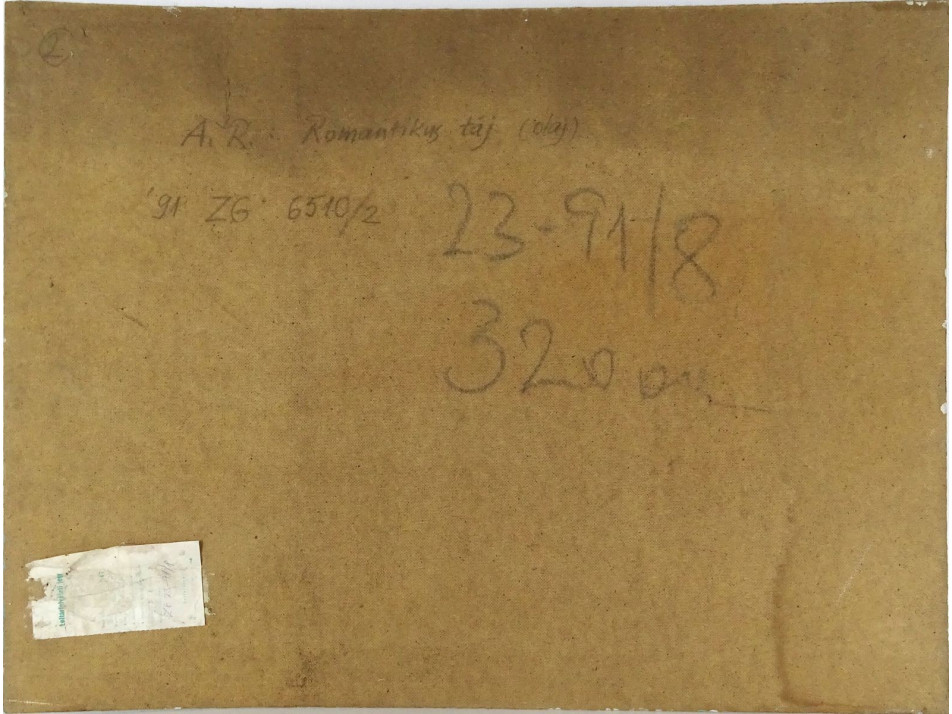 2
A. R. Romantikus táj (olaj)
'91 ZG 6510/2
23-91/8
3200